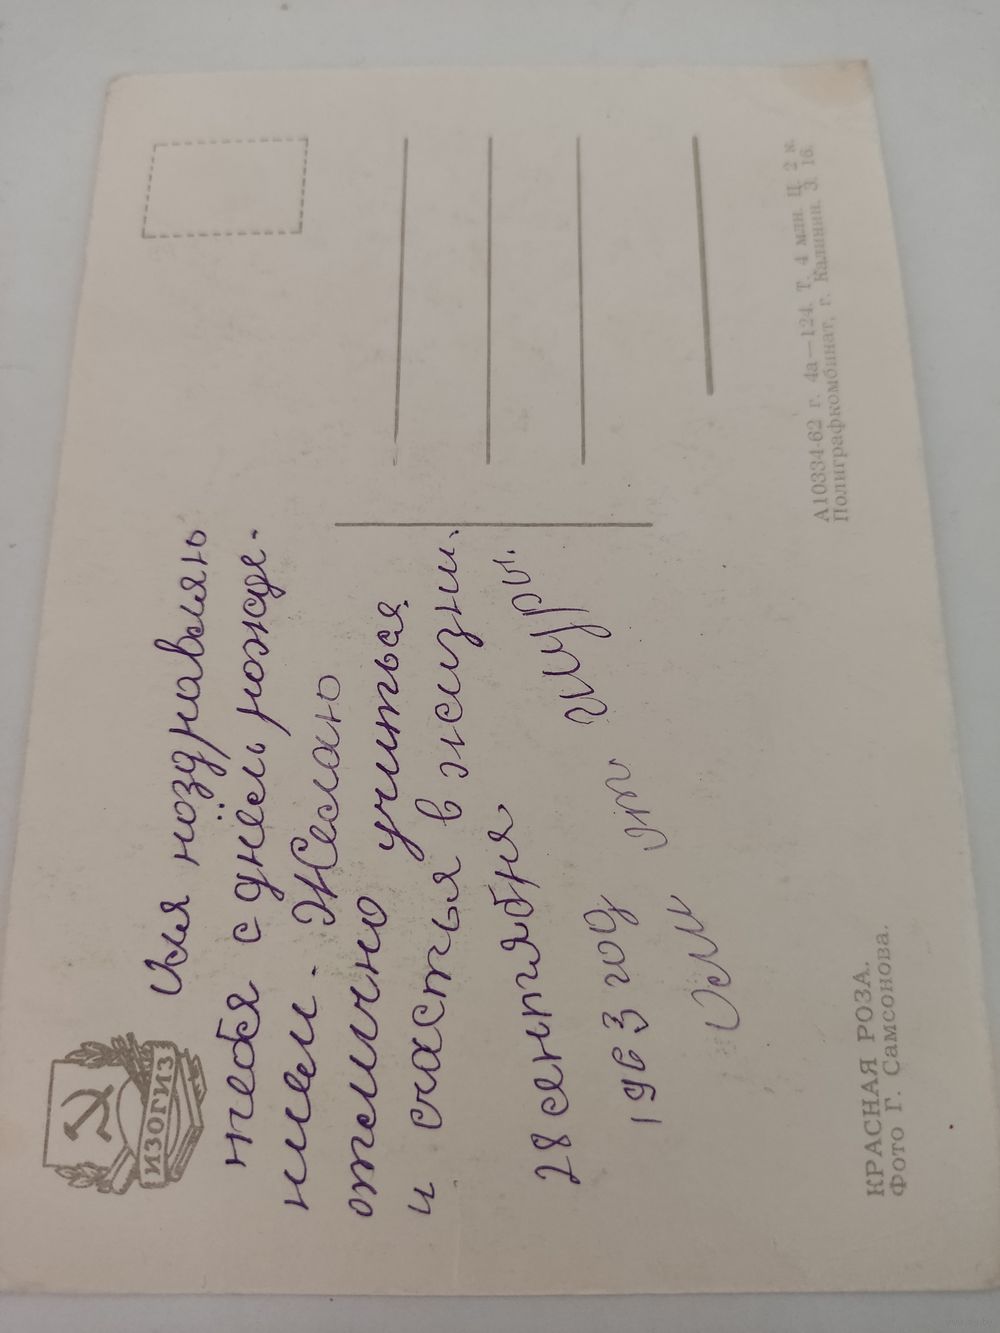 ИЗОГИЗ
поздравляю
тебя с днём рожде-
нием. Желаю
отлично учиться
и счастья в жизни.
28 сентября
1963 год от
КРАСНАЯ РОЗА.
Фото Г. Самсонова.
А10334-62 г. 4а—124. Т. 4 млн. Ц. 2 к.
Полиграфкомбинат, г. Калинин. З. 16.